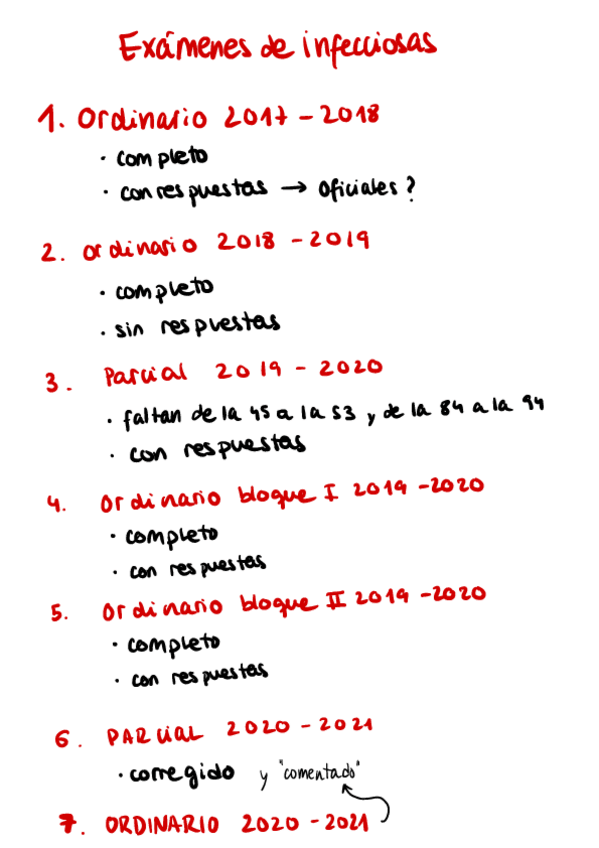 Exámenes de infecciosas
1. Ordinario 2017 - 2018
· completo
· con respuestas → oficiales?
2. ordinario 2018 - 2019
· completo
· sin respuestas
3. Parcial 2019 - 2020
· faltan de la 45 a la 53 y de la 84 a la 94
· con respuestas
4. Ordinario bloque I 2019 - 2020
· completo
· con respuestas
5. Ordinario bloque II 2019 - 2020
· completo
· con respuestas
6. PARCIAL 2020 - 2021
· corregido y "comentado"
7. ORDINARIO 2020 - 2021